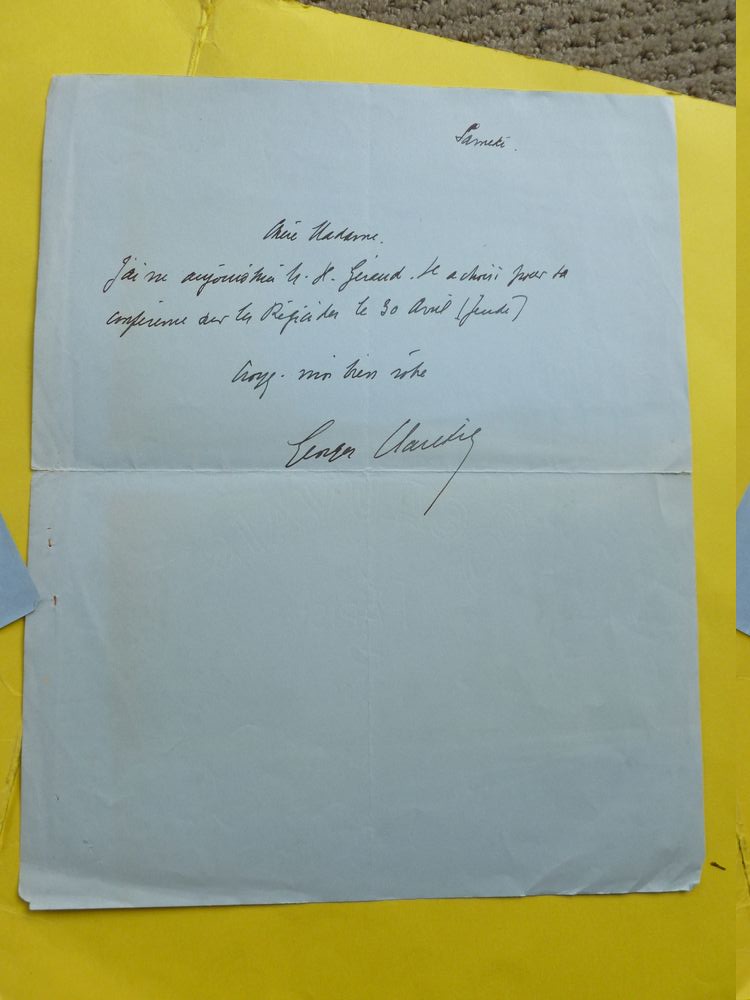 Samedi.
Chère Madame.
J'ai vu aujourd'hui M. H. Géraud. Il a choisi pour sa
conférence sur les Régicides le 30 Avril (Jeudi)
Croyez-moi bien vôtre
Georges Claretie